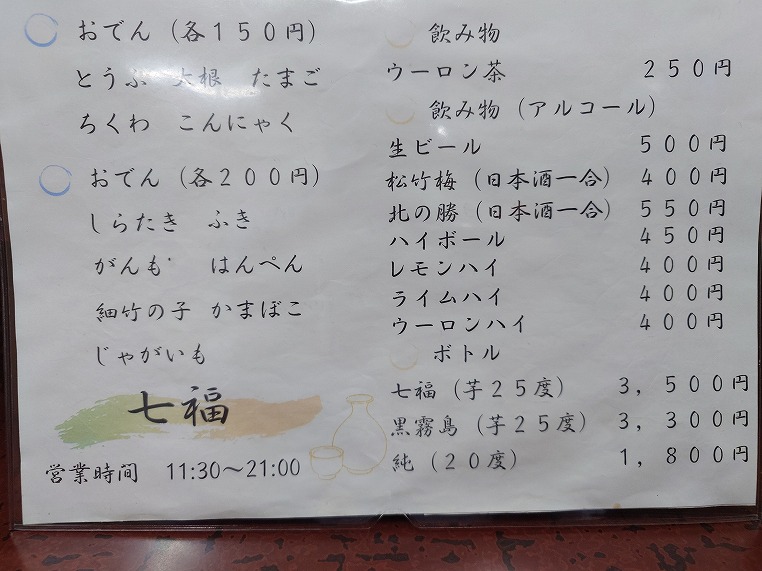 おでん（各１５０円）
とうふ　大根　たまご
ちくわ　こんにゃく
おでん（各２００円）
しらたき　ふき
がんも　はんぺん
細竹の子　かまぼこ
じゃがいも
七福
営業時間　11:30～21:00
飲み物
ウーロン茶　２５０円
飲み物（アルコール）
生ビール　５００円
松竹梅（日本酒一合）　４００円
北の勝（日本酒一合）　５５０円
ハイボール　４５０円
レモンハイ　４００円
ライムハイ　４００円
ウーロンハイ　４００円
ボトル
七福（芋２５度）　３，５００円
黒霧島（芋２５度）　３，３００円
純（２０度）　１，８００円